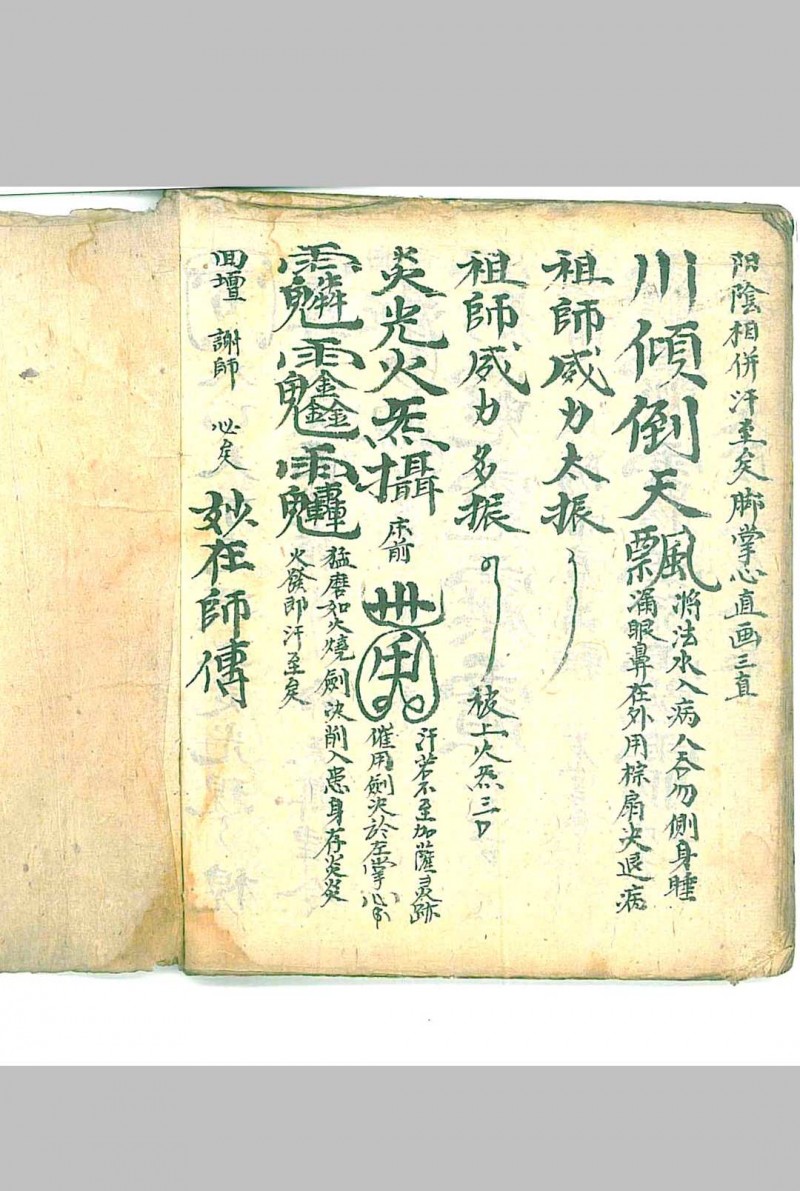 阴陰相併汗至矣脚掌心直画三直
川傾倒天飄
將法水入病人吞勿側身睡
漏眼鼻在外用棕扇決退病
祖師威力太振
祖師威力多振
被上火炁三口
炎光火炁攝
床前
汗若不至加薩灵跡
催用劍決於左掌心
猛磨如火燒劍決削入患身存炎炎
火發即汗至矣
回壇 謝師 心矣
妙在師傳